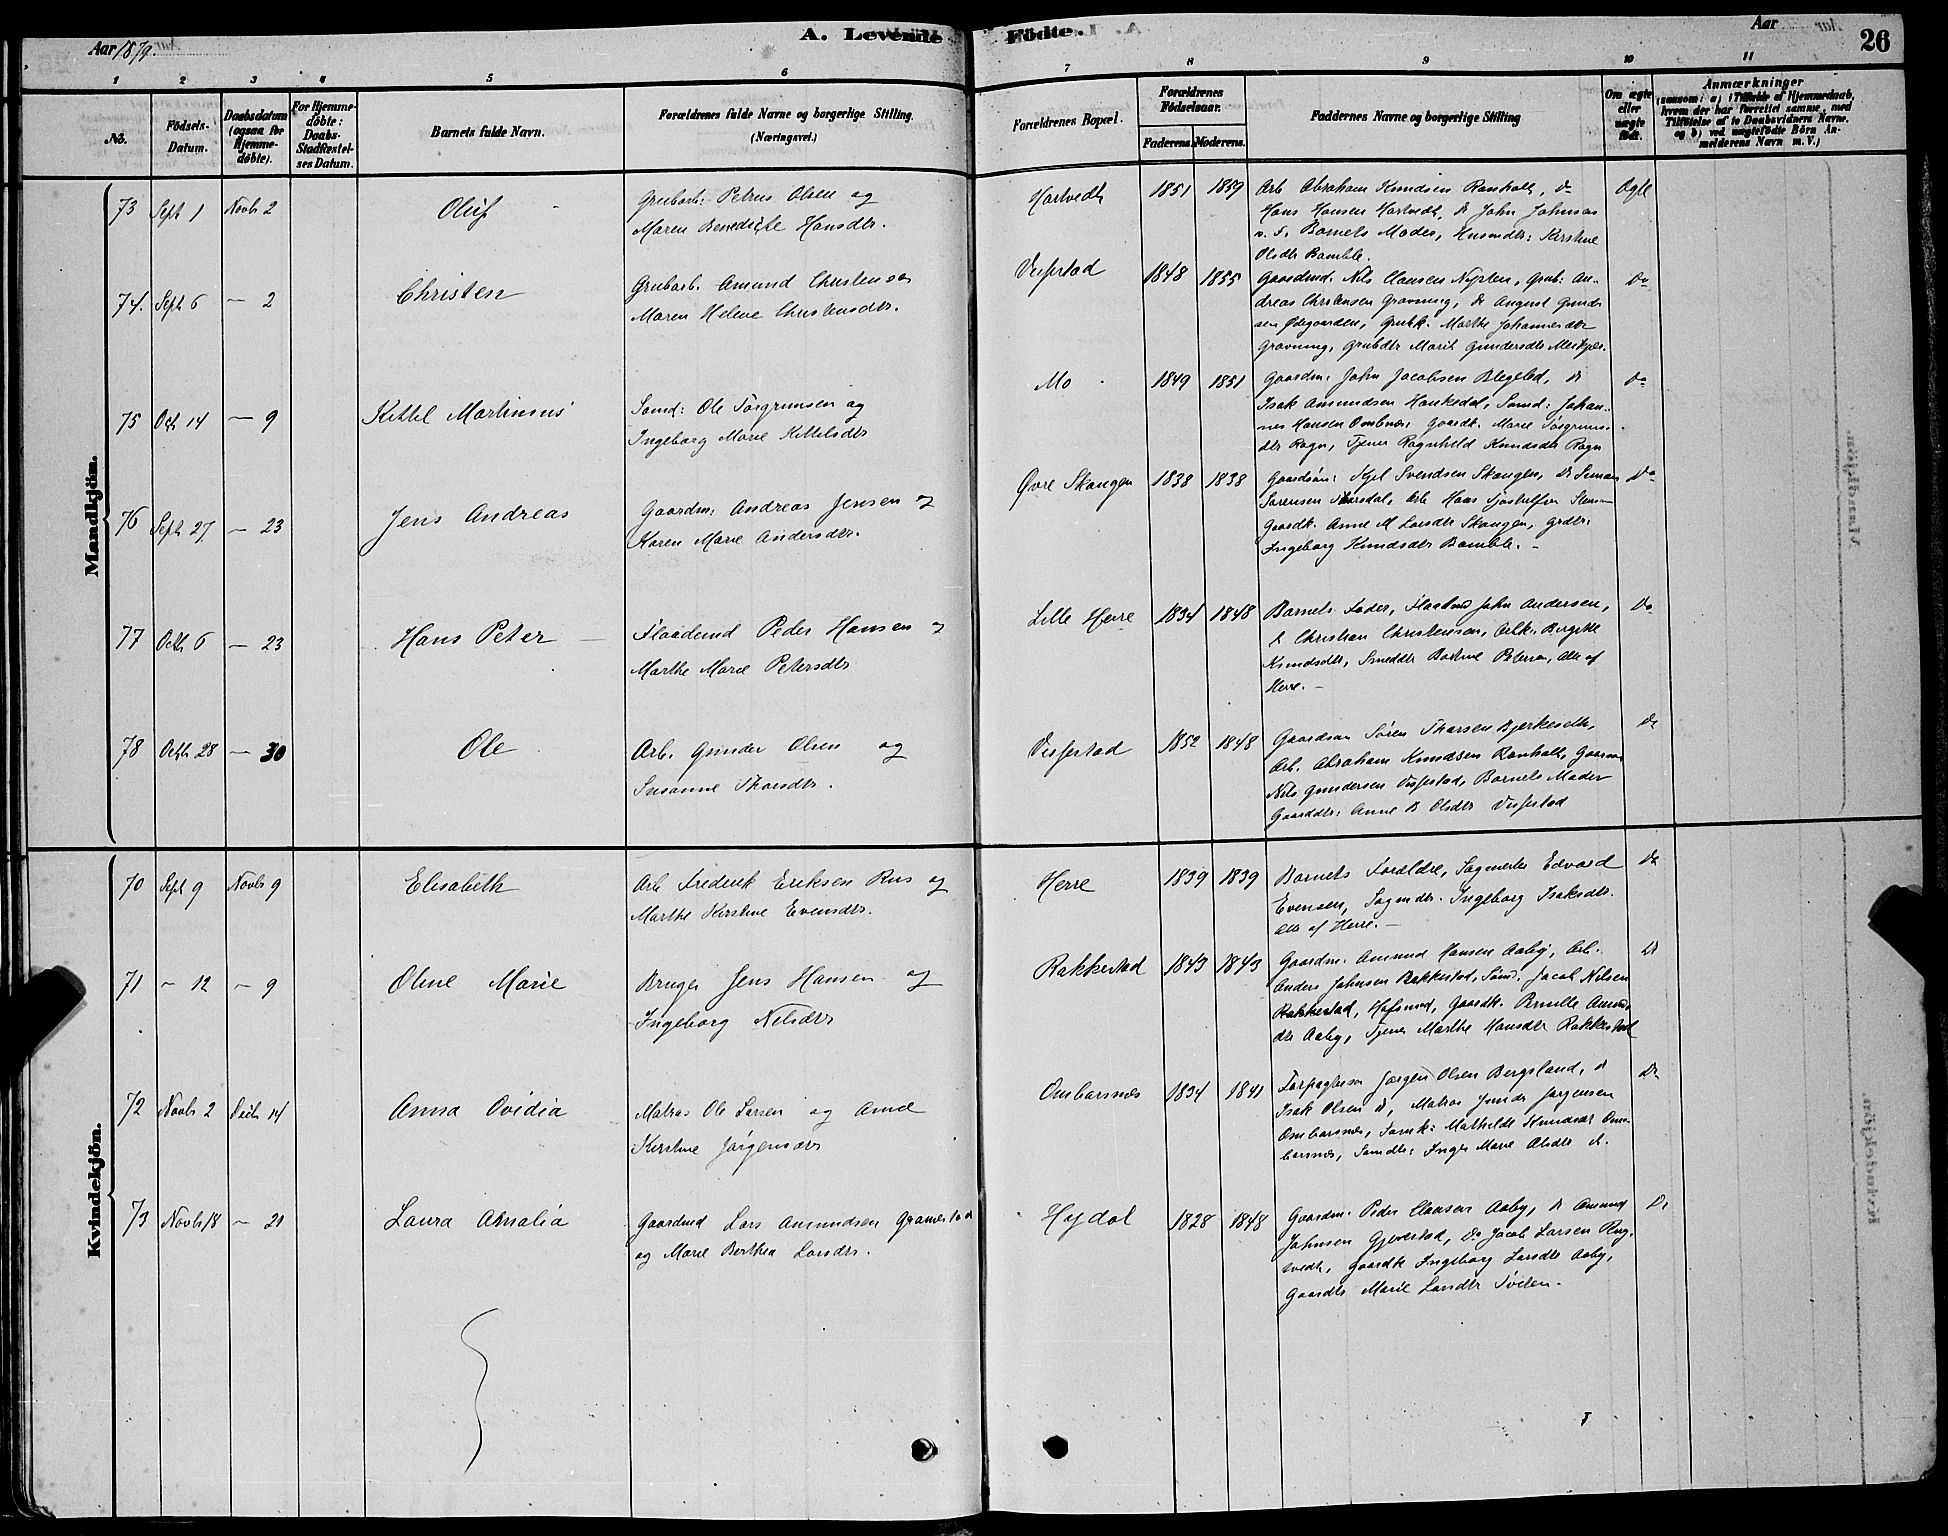 Aar 1879.
A. Levende Födte.
Aar
26
1 2 3 4 5 6 7 8 9 10 11
No.
Födsels-Datum.
Daabsdatum (ogsaa for Hjemmedöbte).
For Hjemmedöbte: Daabs-Stadfæstelses Datum.
Barnets fulde Navn.
Forældrenes fulde Navne og borgerlige Stilling. (Næringsvei.)
Forældrenes Bopæl.
Forældrenes Födselsaar.
Faderens. Moderens.
Faddernes Navne og borgerlige Stilling
Om ægte eller uægte födt.
Anmærkninger
(saasom: a) i Tilfælde af Hjemmedaab, hvem der har forrettet samme, med Tilföielse af to Daabsvidners Navne, og b) ved uægtefödte Börn Anmelderens Navn m. V.)
Mandkjön.
73 Sept 1 Novbr 2 Oluf
Grubarb: Petrus Olsen og
Maren Benedicte Hansdtr.
Hartvedt 1851 1859
Arb Abraham Knudsen Ranholt, do
Hans Hansen Hartvedt, do John Johnsen
s. s. Barnets Moder, Husmdtr: Kirstine
Olsdtr Bamble.
Ægte
74. Sept 6 — 2 Christen
Grubarb. Amund Christensen
Maren Helene Christensdtr.
Vissestad 1848 1855
Gaardmd. Nils Clausen Nysten, Grub: An-
dreas Christensen Gravning, do August Gunder
sen Ødegaarden, Grubk. Marthe Johannesdtr
Gravning, Grubdtr Marit Gundersdtr
Do
75 Octb 14 — 9 Kittel Martinius
Sømd: Ole Torgrimsen og
Ingeborg Marie Kittelsdtr
Mo 1849 1851
Gaardm: John Jacobsen do
Isak Amundsen Haukedal, Sømd: Johan-
nes Hansen Ombnæs, Gaardk. Marie Torgrims-
dtr Rogn, Tjener Ragnhild Knudsdtr Rogn
Do
76 Sept 27 — 23 Jens Andreas
Gaardm: Andreas Jensen og
Karen Marie Andersdtr.
Øvre Skaugen 1838 1838
Gaardsøn: Kjel Svendsen Skaugen, do Simon
Sørensen Aarsdal, Arb Hans
Gaardk. Anne M Larsdtr Skaugen, grdtr:
Ingeborg Knudsdtr Bamble. –
Do
77 Octb 6 — 23 Hans Peter
Flaademd Peder Hansen og
Marthe Marie Petersdtr
Lille Herre 1834 1848
Barnets Fader, Flaademd John Andersen,
do Christian Christensen, Arbk. Birgitte
Knudsdtr, Smeddtr Petersen, alle af
Herre. –
Do
78 Octbr 28 — 30 Ole
Arb. Gunder Olsen og
Susanne Thorsdtr.
Vissestad 1852 1848
Gaardsøn Søren Thorsen Bjerkeseth,
Arb. Abraham Knudsen Ranholt, Gaardm
Nils Gundersen Vissestad, Barnets Moder
Gaarddtr: Anne B Olsdtr Vissestad
Do
Kvindekjön.
70 Sept 9 Novbr 9 Elisabeth
Arb Frederik Eriksen Rus og
Marthe Kirstine Evensdtr.
Herre 1839 1839
Barnets Forældre, Sagmester Edvard
Evensen, Sagmdtr. Ingeborg Isaksdtr.
alle af Herre. –
Do
71 – 12 – 9 Oline Marie
Bruger Jens Hansen og
Ingeborg Nilsdtr
Rakkestad 1843 1843
Gaardm. Amund Hansen Aaby, Arb.
Anders Johnsen Rakkestad, Sømd. Jacob Nilsen
Rakkestad, Gaardk. Pernille Amunds
dtr Aaby, Tjener Marthe Hansdtr Rakkestad
Do
72 Novbr 2 Decbr 14 Anna Ovidia
Matros Ole Larsen og Anne
Kirstine Jørgensdtr
Ombarsnæs 1834 1841
Forpagtersøn Jørgen Olsen Bergsland, do
Isak Olsen do, Matros Jørgensen
Ombarsnæs, Sømk: Mathilde Knudsdtr Om-
barsnæs, Sømdtr: Inger Marie Olsdtr do.
Do
73 Novbr 18 – 21 Laura Amalia
Gaardmd Lars Amundsen Gramestad
og Marie Berthea Larsdtr.
Hydal 1828 1848
Gaardm: Peder Clausen Aaby, do Amund
Johnsen Gjerestad, Do Jacob Larsen Rug-
tvedt, Gaardk Ingeborg Larsdtr Aaby,
Gaarddtr Marie Larsdtr Tveten.
Do